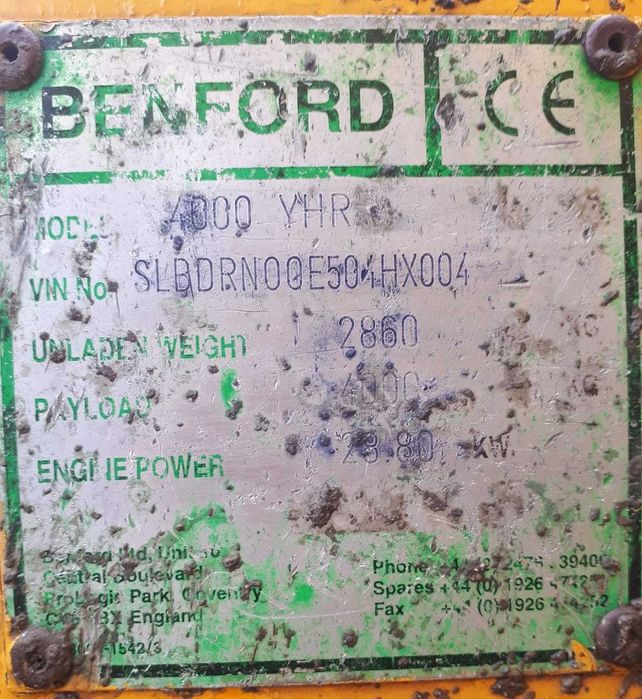 BENFORD CE
MODEL 4000 YHR
VIN No. SLBDRN00E504HX004
UNLADEN WEIGHT 2860 KG
PAYLOAD 4000 KG
ENGINE POWER 23.80 KW
Benford Ltd, Unit
Central Boulevard Phone
ProLogis Park, Coventry Spares +44 (0) 1926
England Fax +44 (0) 1926
-1542/3